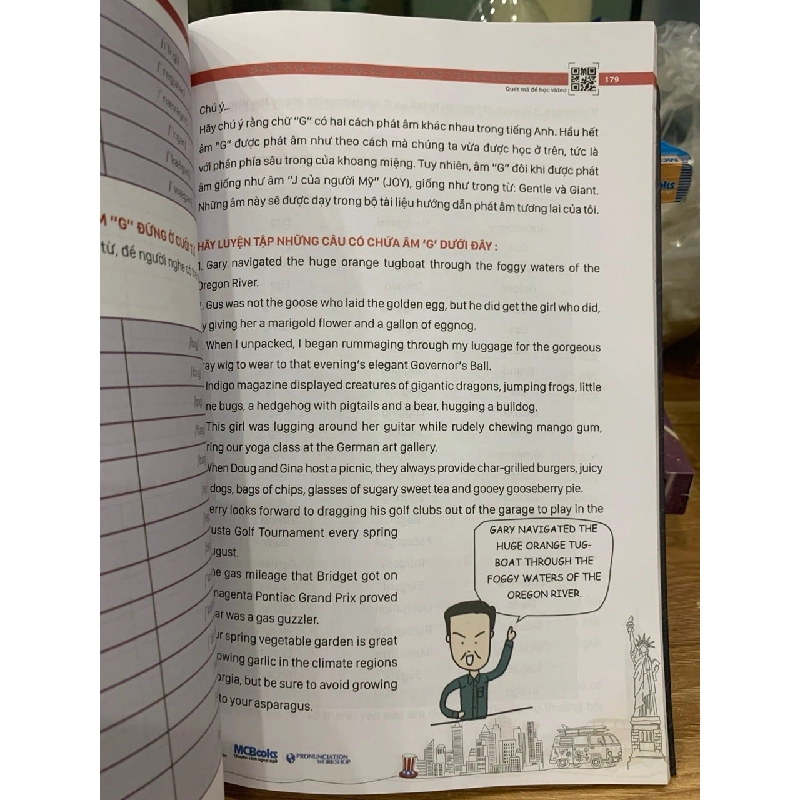 Quét mã để học video
179
Chú ý...
Hãy chú ý rằng chữ "G" có hai cách phát âm khác nhau trong tiếng Anh. Hầu hết
âm "G" được phát âm như theo cách mà chúng ta vừa được học ở trên, tức là
với phần phía sâu trong của khoang miệng. Tuy nhiên, âm "G" đôi khi được phát
âm giống như âm "J của người Mỹ" (JOY), giống như trong từ: Gentle và Giant.
Những âm này sẽ được dạy trong bộ tài liệu hướng dẫn phát âm tương lai của tôi.
"G" ĐỨNG Ở CUỐI
từ, để người nghe có
HÃY LUYỆN TẬP NHỮNG CÂU CÓ CHỨA ÂM 'G' DƯỚI ĐÂY :
1. Gary navigated the huge orange tugboat through the foggy waters of the
Oregon River.
Gus was not the goose who laid the golden egg, but he did get the girl who did,
y giving her a marigold flower and a gallon of eggnog.
When I unpacked, I began rummaging through my luggage for the gorgeous
ray wig to wear to that evening's elegant Governor's Ball.
Indigo magazine displayed creatures of gigantic dragons, jumping frogs, little
ne bugs, a hedgehog with pigtails and a bear, hugging a bulldog.
This girl was lugging around her guitar while rudely chewing mango gum,
ring our yoga class at the German art gallery.
When Doug and Gina host a picnic, they always provide char-grilled burgers, juicy
dogs, bags of chips, glasses of sugary sweet tea and gooey gooseberry pie.
erry looks forward to dragging his golf clubs out of the garage to play in the
usta Golf Tournament every spring
ugust.
ne gas mileage that Bridget got on
nagenta Pontiac Grand Prix proved
ar was a gas guzzler.
ur spring vegetable garden is great
owing garlic in the climate regions
orgia, but be sure to avoid growing
to your asparagus.
GARY NAVIGATED THE
HUGE ORANGE TUG-
BOAT THROUGH THE
FOGGY WATERS OF THE
OREGON RIVER.
MCBooks
Chuyên sách ngoại ngữ
PRONUNCIATION
WORKSHOP